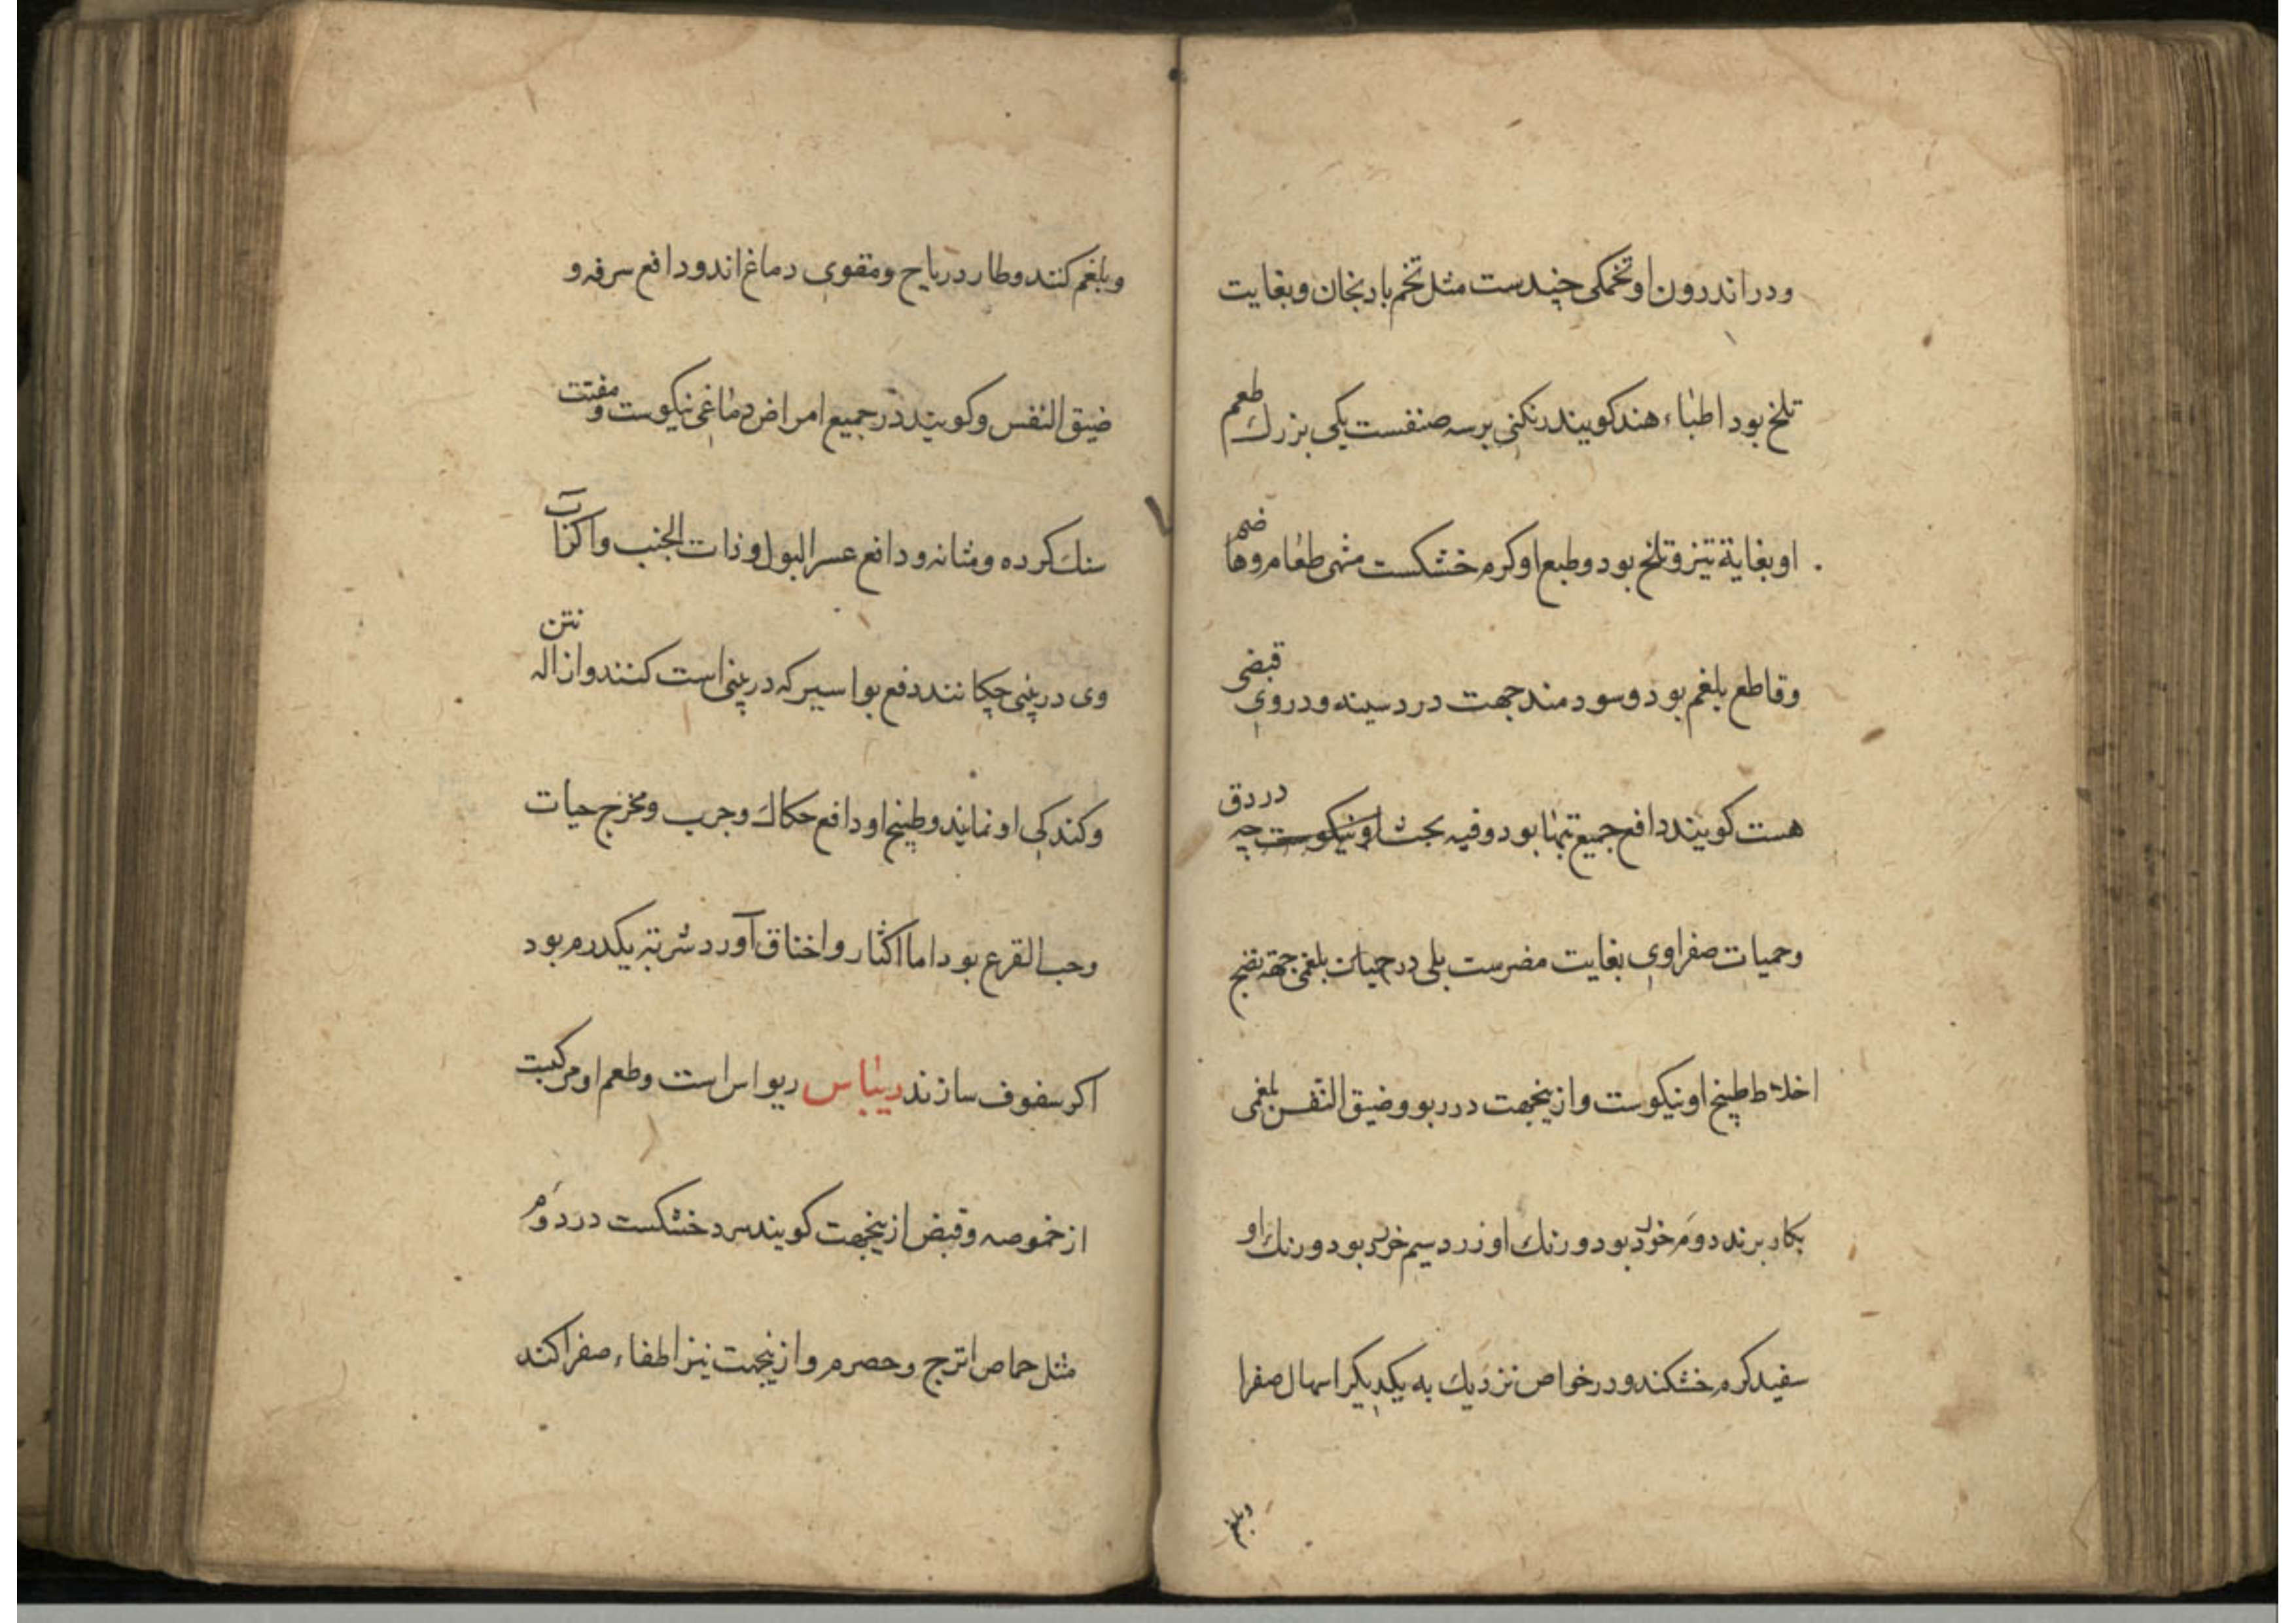 ودر اندرون او تخمکی چندست مثل تخم بادنجان وبغایت
تلخ بود اطباء هند کویند رنکنی برسه صنفست یکی بزرك طعم
او بغایة تیز وتلخ بود وطبع او کرم خشکست مشهی طعام وهاضم
وقاطع بلغم بود وسودمند جهت درد سینه ودروی قبضی
هست کویند دافع جمیع تبها بود وفیه بحث او نیکوست چه در دق
وحمیات صفراوی بغایت مضرست بلی در حمیات بلغمی جهة نضج
اخلاط طبیخ او نیکوست وازینجهت در ربو وضیق النفس بلغمی
بکار برند دوم خورد بود ورنك او زرد سیم خورد بود ورنك او
سفید کرم خشکند ودر خواص نزدیك به یکدیکر اسهال صفرا
وبلغم
وبلغم کنند وطارد ریاح ومقوی دماغ اند ودافع سرفه و
ضیق النفس وکویند در جمیع امراض دماغی نیکوست ومفتت
سنك کرده ومثانه ودافع عسر البول وذات الجنب واکر آب
وی در بینی چکانند دفع بواسیر که در بینی است کنند وازاله نتن
وکندکی او نمایند وطبیخ او دافع حکاك وجرب ومخرج حیات
وحب القرع بود اما اکثار او خناق آورد شربته یکدرم بود
اکر سفوف سازند ریباس ریواس است وطعم او مرکبت
از خموصه وقبض ازینجهت کویند سرد خشکست در دوم
مثل حماض اترج وحصرم وازینجهت نیز اطفاء صفرا کند